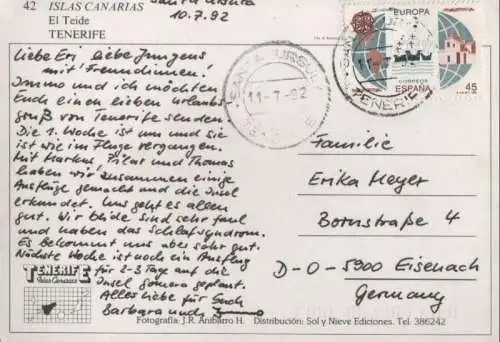 42 ISLAS CANARIAS
El Teide
TENERIFE
Santa Ursula
10.7.92
Liebe Eri, liebe Jungens
mit Freundinnen!
Immo und ich möchten
Euch einen lieben Urlaubs
gruß von Tenerife senden.
Die 1. Woche ist um und sie
ist wie im Fluge vergangen.
Mit Markus, Pilar und Thomas
haben wir zusammen einige
Ausflüge gemacht und die Insel
erkundet. Uns geht es allen
gut. Wir beide sind sehr faul
und haben das Schlafsyndrom.
Es bekommt uns aber sehr gut.
Nächste Woche ist noch ein Ausflug
für 2-3 Tage auf die
Insel Gomera geplant.
Alles Liebe für Euch
Barbara und Immo
TENERIFE
Islas Canarias
SANTA URSULA
11-7-92
TENERIFE
EUROPA
CORREOS
ESPAÑA
45
Familie
Erika Meyer
Bornstraße 4
D-O-5900 Eisenach
Germany
Fotografía: J.R. Anibarro H. Distribución: Sol y Nieve Ediciones. Tel. 386242